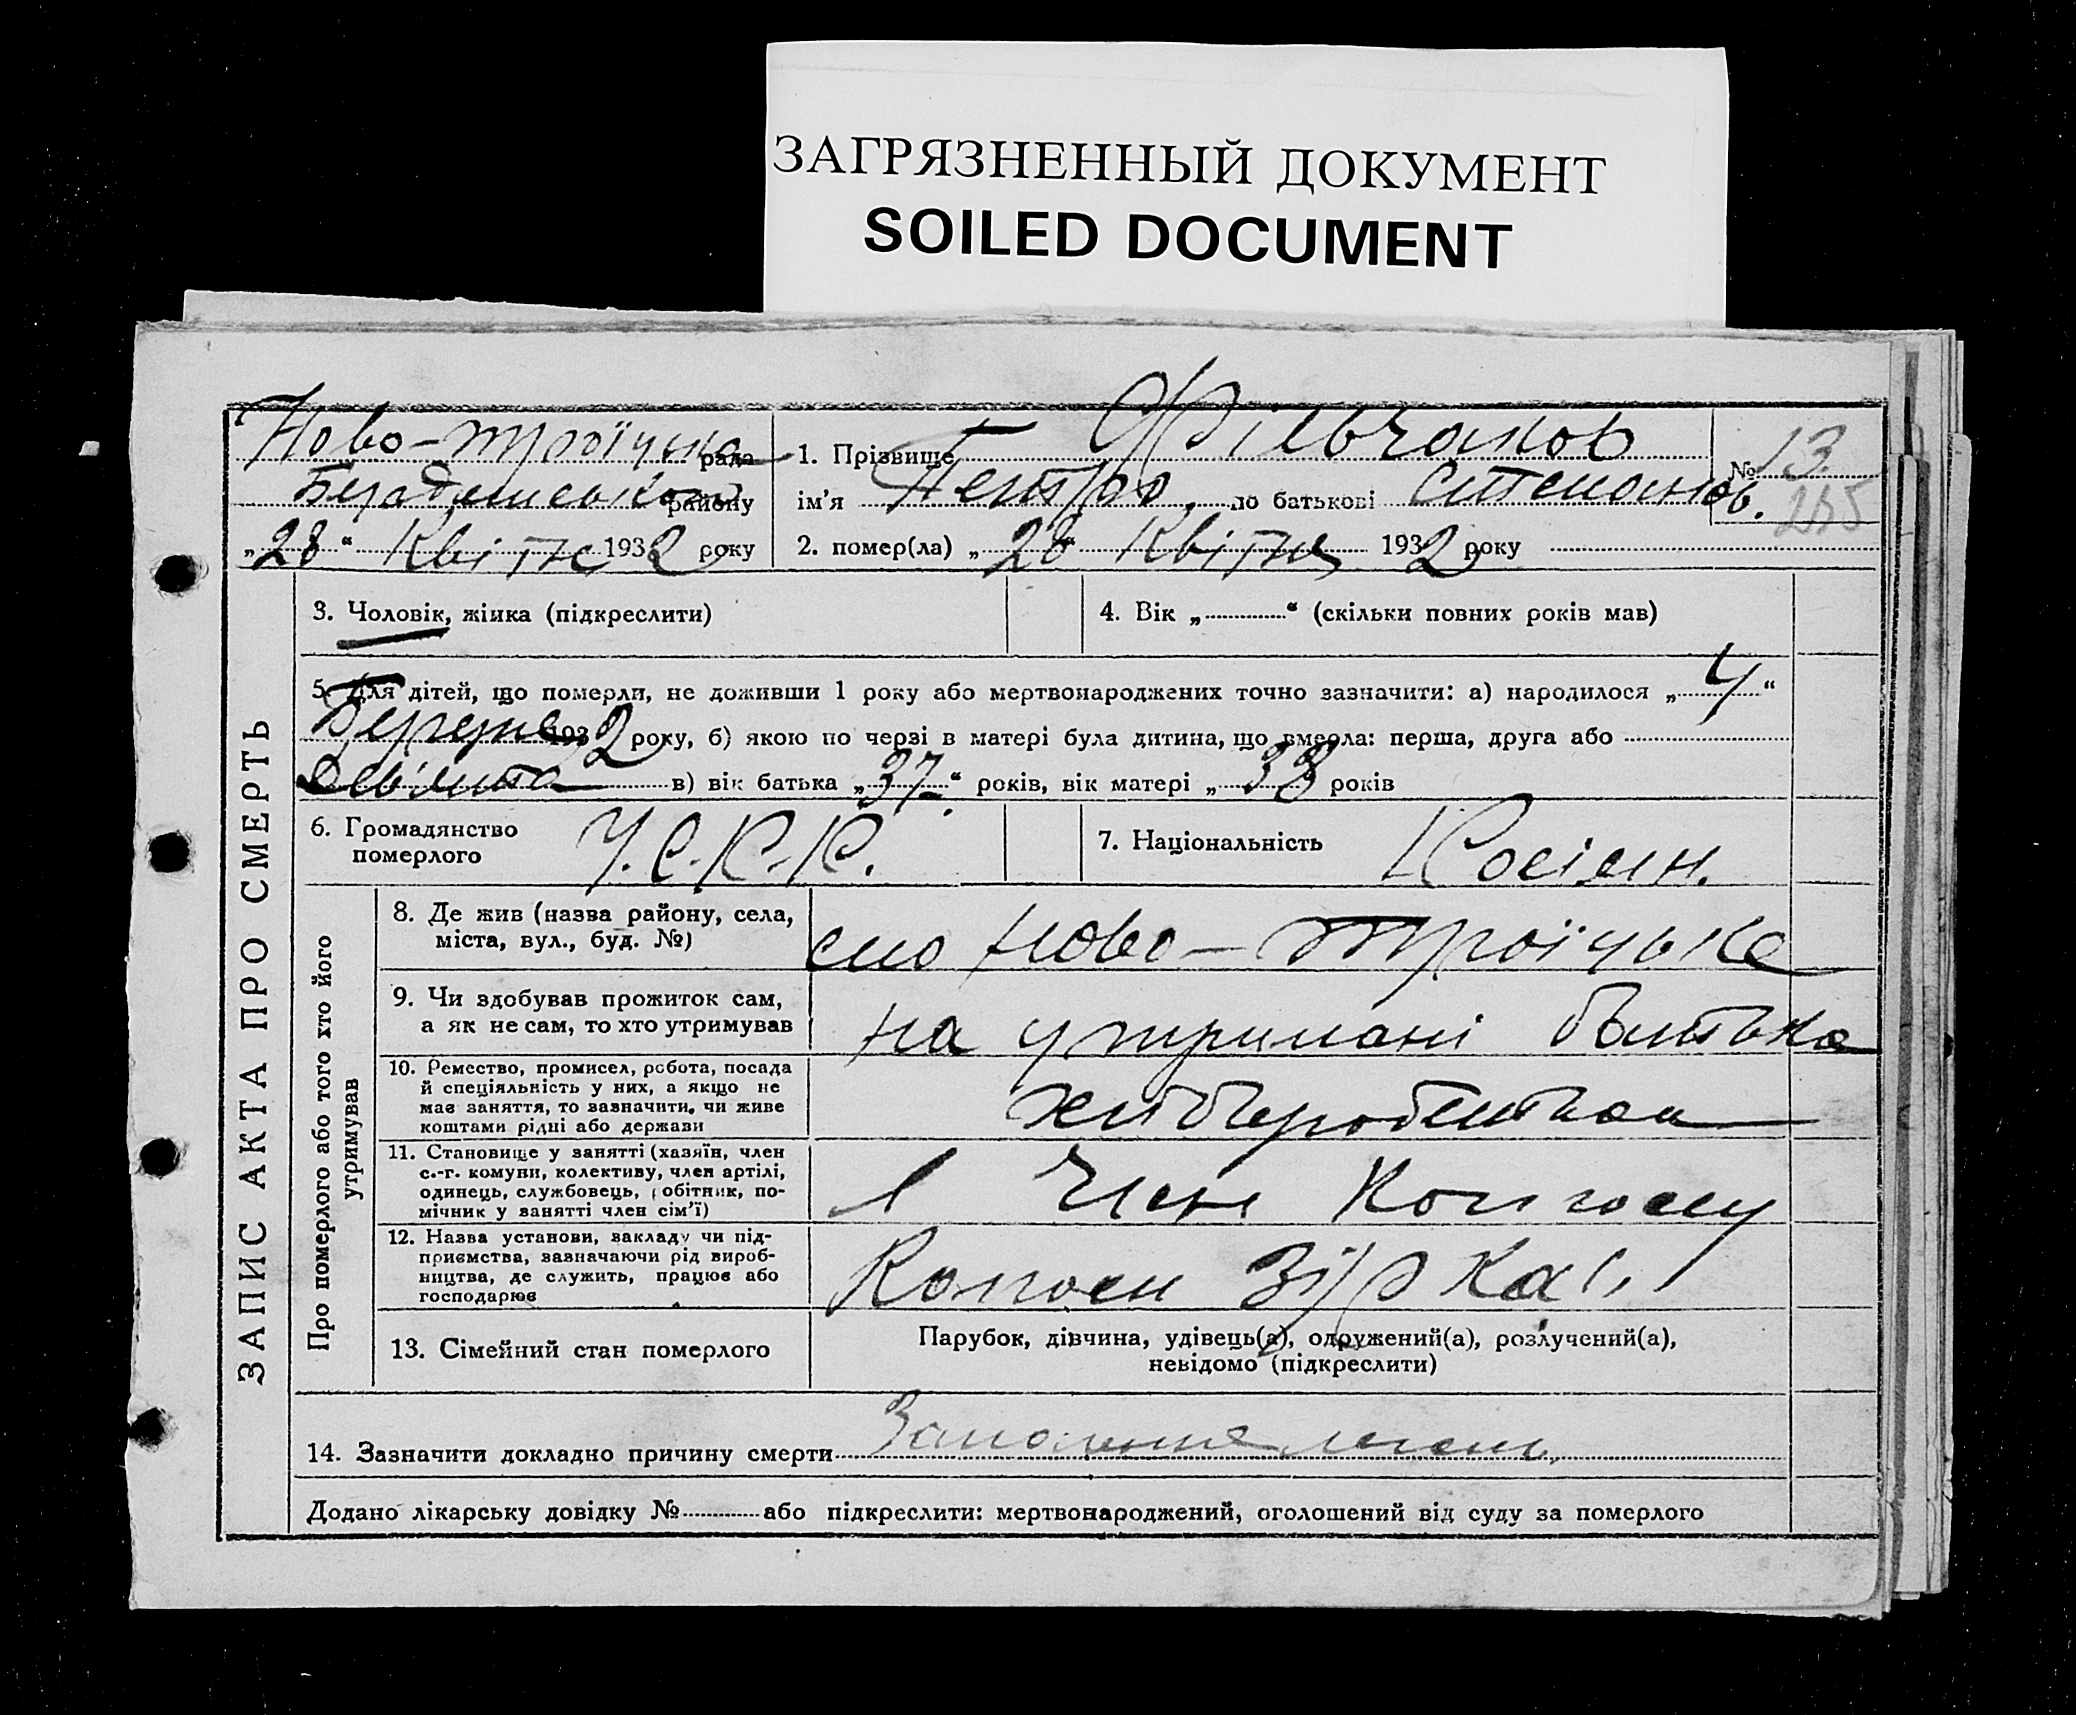 ЗАГРЯЗНЕННЫЙ ДОКУМЕНТ
SOILED DOCUMENT
Ново-Троїцька рада
району
„28“ Квітня 1932 року
1. Прізвище Фільчаков
ім'я Петро по батькові Степанов.
№ 13
285
2. помер(ла) „28“ Квітня 1932 року
ЗАПИС АКТА ПРО СМЕРТЬ
3. Чоловік, жінка (підкреслити)
4. Вік „ “ (скільки повних років мав)
5. Для дітей, що померли, не доживши 1 року або мертвонароджених точно зазначити: а) народилося „4“
Березня 1932 року, б) якою по черзі в матері була дитина, що вмерла: перша, друга або
Дев'ята в) вік батька „37“ років, вік матері „38 років
6. Громадянство
померлого
У.С.Р.Р.
7. Національність Росіян.
Про померлого або того хто його
утримував
8. Де жив (назва району, села,
міста, вул., буд. №)
село Ново-Троїцьке
9. Чи здобував прожиток сам,
а як не сам, то хто утримував
на утримані батька
10. Ремество, промисел, робота, посада
й спеціяльність у них, а якщо не
має заняття, то зазначити, чи живе
коштами рідні або держави
хліборобством
11. Становище у занятті (хазяїн, член
с.-г. комуни, колективу, член артілі,
одинець, службовець, робітник, по-
мічник у занятті член сім'ї)
Член Колгоспу
12. Назва установи, закладу чи під-
приємства, зазначаючи рід вироб-
ництва, де служить, працює або
господарює
Колгосп Зірка
13. Сімейний стан померлого
Парубок, дівчина, удівець(а), одружений(а), розлучений(а),
невідомо (підкреслити)
14. Зазначити докладно причину смерти Запалення легень
Додано лікарську довідку № або підкреслити: мертвонароджений, оголошений від суду за померлого